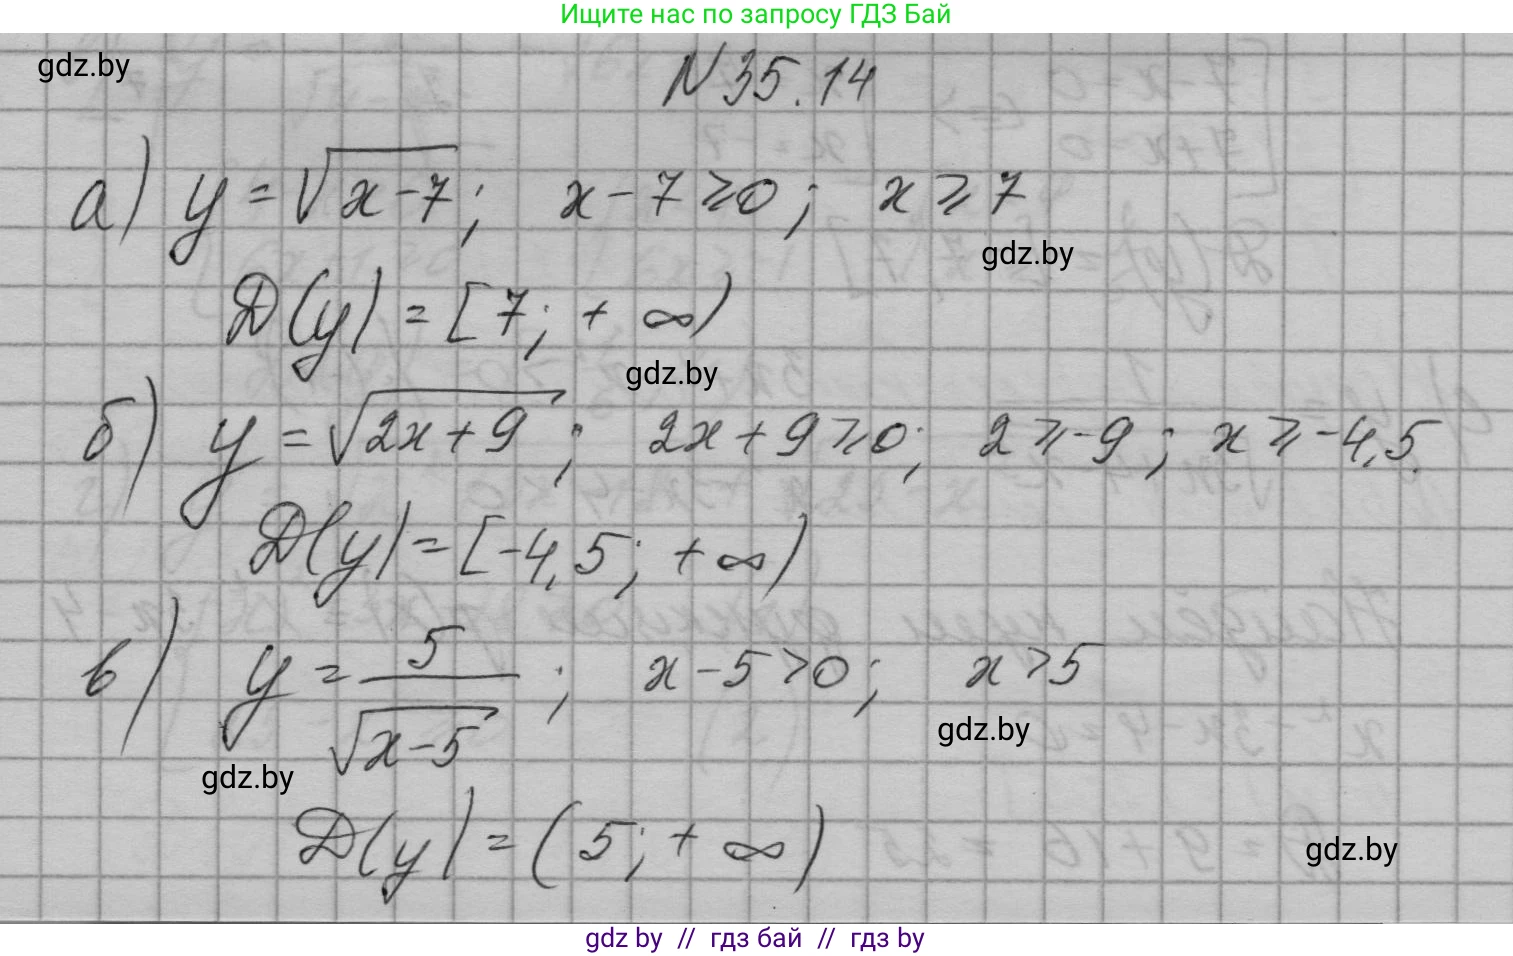 Ищите нас по запросу ГДЗ Бай
gdz.by
N 35.14
а) y = √(x-7); x-7⩾0; x⩾7
gdz.by
D(y) = [7; +∞)
gdz.by
б) y = √(2x+9); 2x+9⩾0; 2⩾-9; x⩾-4,5.
D(y) = [-4,5; +∞)
в) y = 5/√(x-5); x-5>0; x>5
gdz.by
gdz.by
D(y) = (5; +∞)
gdz.by
gdz by // гдз бай // гдз by